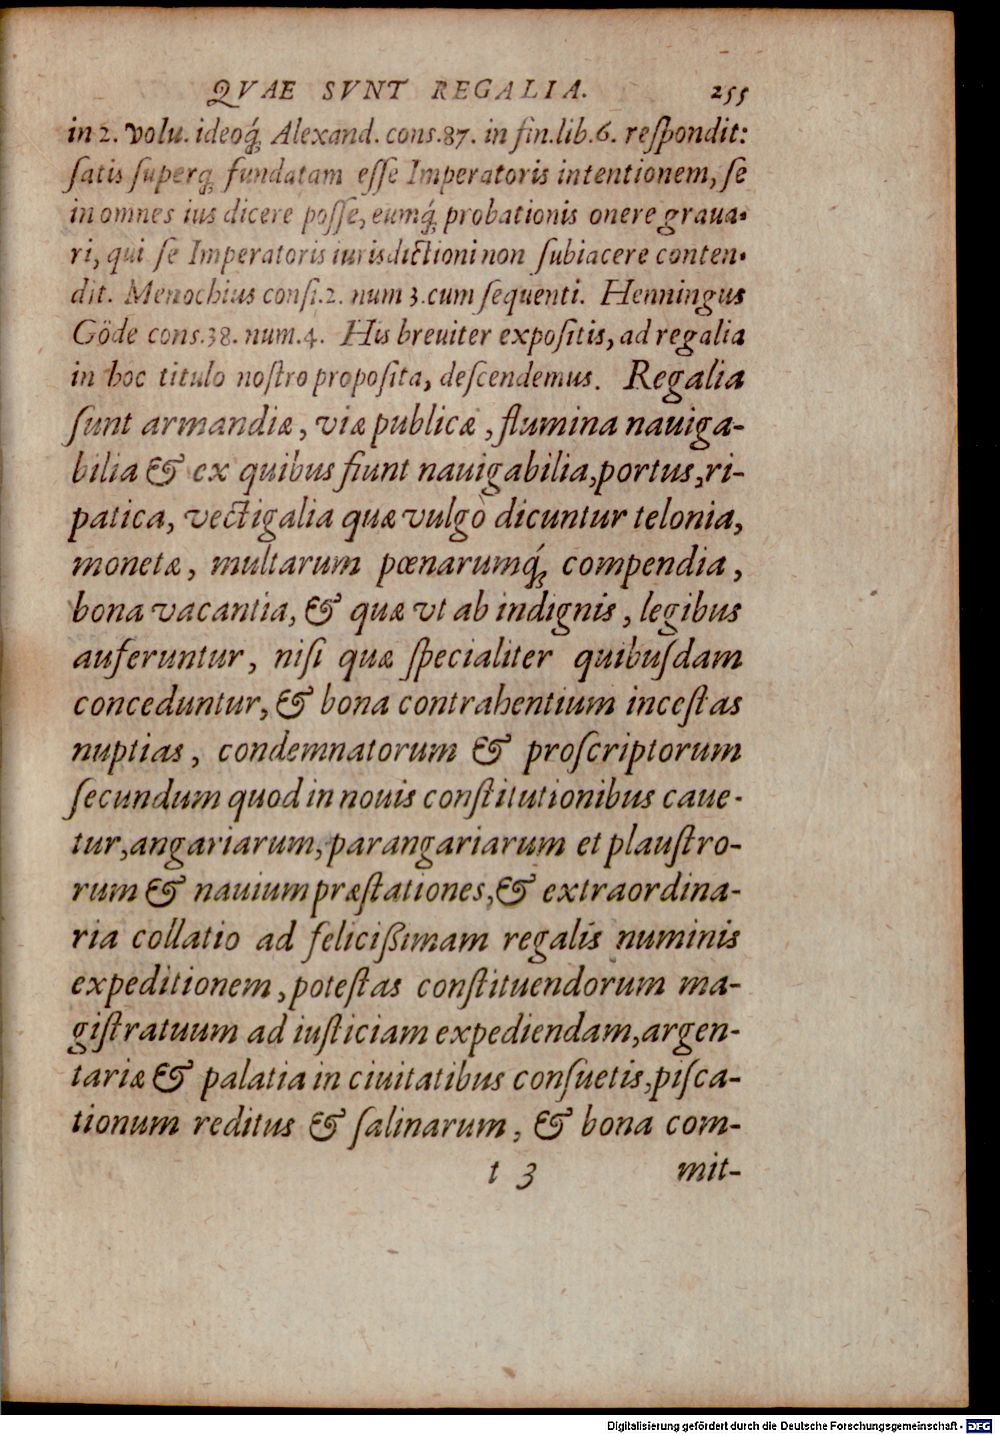 QVAE SVNT REGALIA. 255
in 2. volu. ideoq́ꝫ Alexand. cons.87. in fin.lib.6. reſpondit:
ſatis ſuperqꝫ fundatam eſſe Imperatoris intentionem, ſe
in omnes ius dicere poſſe, eumq́ꝫ probationis onere graua-
ri, qui ſe Imperatoris iurisdictioni non ſubiacere conten-
dit. Menochius conſi.2. num 3.cum ſequenti. Henningus
Göde cons.38. num.4. His breuiter expoſitis, ad regalia
in hoc titulo noſtro propoſita, deſcendemus. Regalia
ſunt armandiæ, viæ publicæ, flumina nauiga-
bilia & ex quibus fiunt nauigabilia, portus, ri-
patica, vectigalia quæ vulgò dicuntur telonia,
monetæ, multarum pœnarumq́ꝫ compendia,
bona vacantia, & quæ vt ab indignis, legibus
auferuntur, niſi quæ ſpecialiter quibuſdam
conceduntur, & bona contrahentium inceſtas
nuptias, condemnatorum & proſcriptorum
ſecundum quod in nouis conſtitutionibus caue-
tur, angariarum, parangariarum et plauſtro-
rum & nauium præſtationes, & extraordina-
ria collatio ad feliciſsimam regalis numinis
expeditionem, poteſtas conſtituendorum ma-
giſtratuum ad iuſticiam expediendam, argen-
tariæ & palatia in ciuitatibus conſuetis, piſca-
tionum reditus & ſalinarum, & bona com-
t 3 mit-
Digitalisierung gefördert durch die Deutsche Forschungsgemeinschaft - DFG